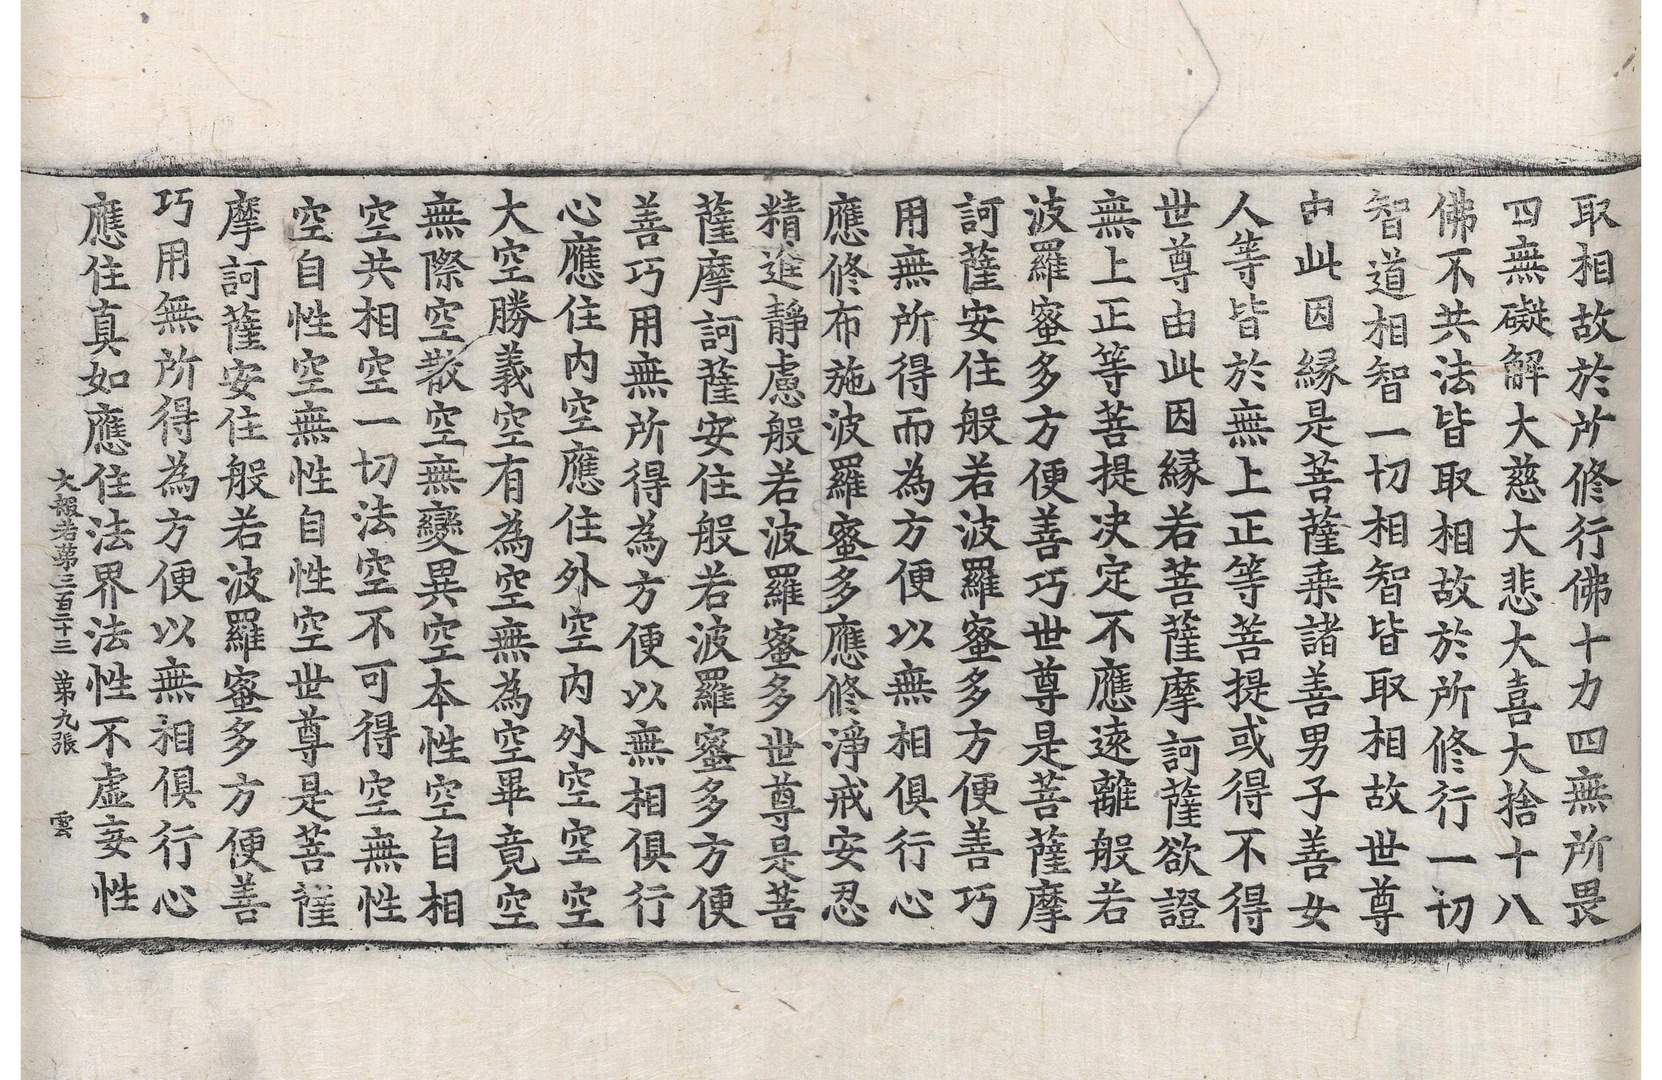 取相故於所修行佛十力四無所畏
四無礙解大慈大悲大喜大捨十八
佛不共法皆取相故於所修行一切
智道相智一切相智皆取相故世尊
由此因緣是菩薩乘諸善男子善女
人等皆於無上正等菩提或得不得
世尊由此因緣若菩薩摩訶薩欲證
無上正等菩提決定不應遠離般若
波羅蜜多方便善巧世尊是菩薩摩
訶薩安住般若波羅蜜多方便善巧
用無所得而為方便以無相俱行心
應修布施波羅蜜多應修淨戒安忍
精進靜慮般若波羅蜜多世尊是菩
薩摩訶薩安住般若波羅蜜多方便
善巧用無所得為方便以無相俱行
心應住內空應住外空內外空空空
大空勝義空有為空無為空畢竟空
無際空散空無變異空本性空自相
空共相空一切法空不可得空無性
空自性空無性自性空世尊是菩薩
摩訶薩安住般若波羅蜜多方便善
巧用無所得為方便以無相俱行心
應住真如應住法界法性不虛妄性
大般若第三百二十三 第九張 雲